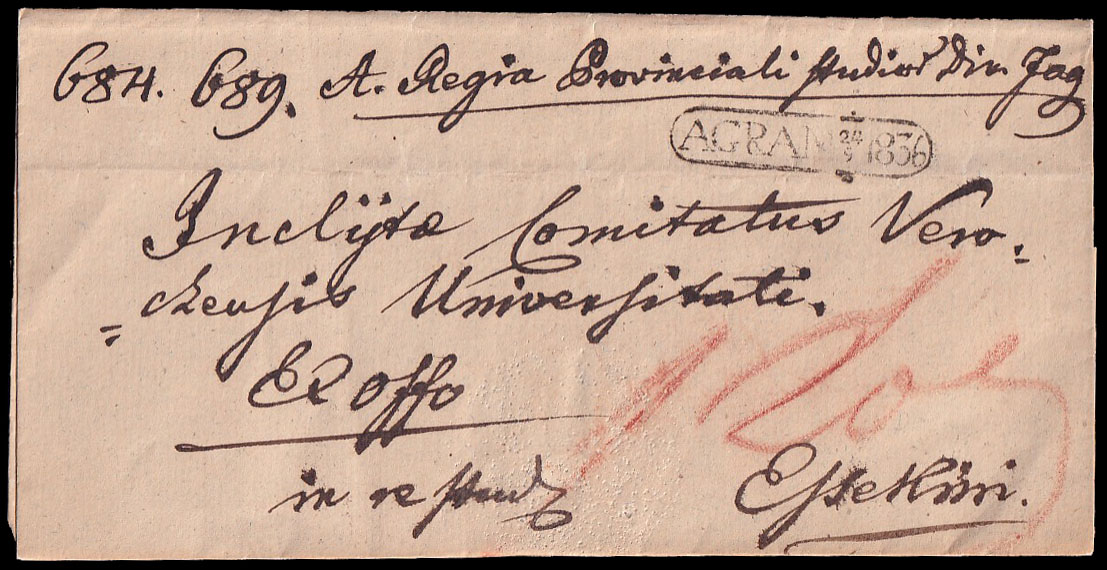 684. 689. A. Regia Provinciali studior Dir. Zag
AGRAM 24/9 1836
Inclÿtæ Comitatus Vero=
=czensis Universitati.
Ex offo
in re stud
Essekini.